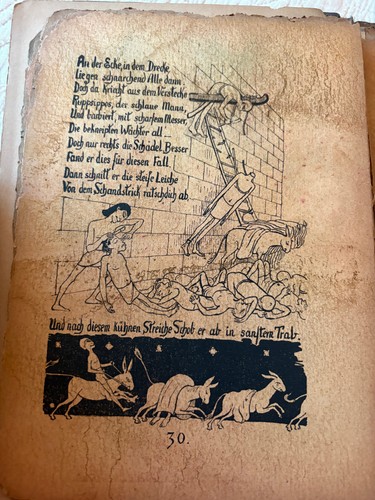 An der Ecke, in dem Drecke
Liegen schnarchend Alle dann
Doch da kriecht aus dem Verstecke
Ruppsippos, der schlaue Mann,
Und barbiert, mit scharfem Messer,
Die bekneipten Wächter all'.
Doch nur rechts die Schädel. Besser
Fand er dies für diesen Fall.
Dann schnitt er die steife Leiche
Von dem Schandstrick ratschdich ab.
Und nach diesem kühnen Streiche Schob er ab in sanftem Trab.
30.